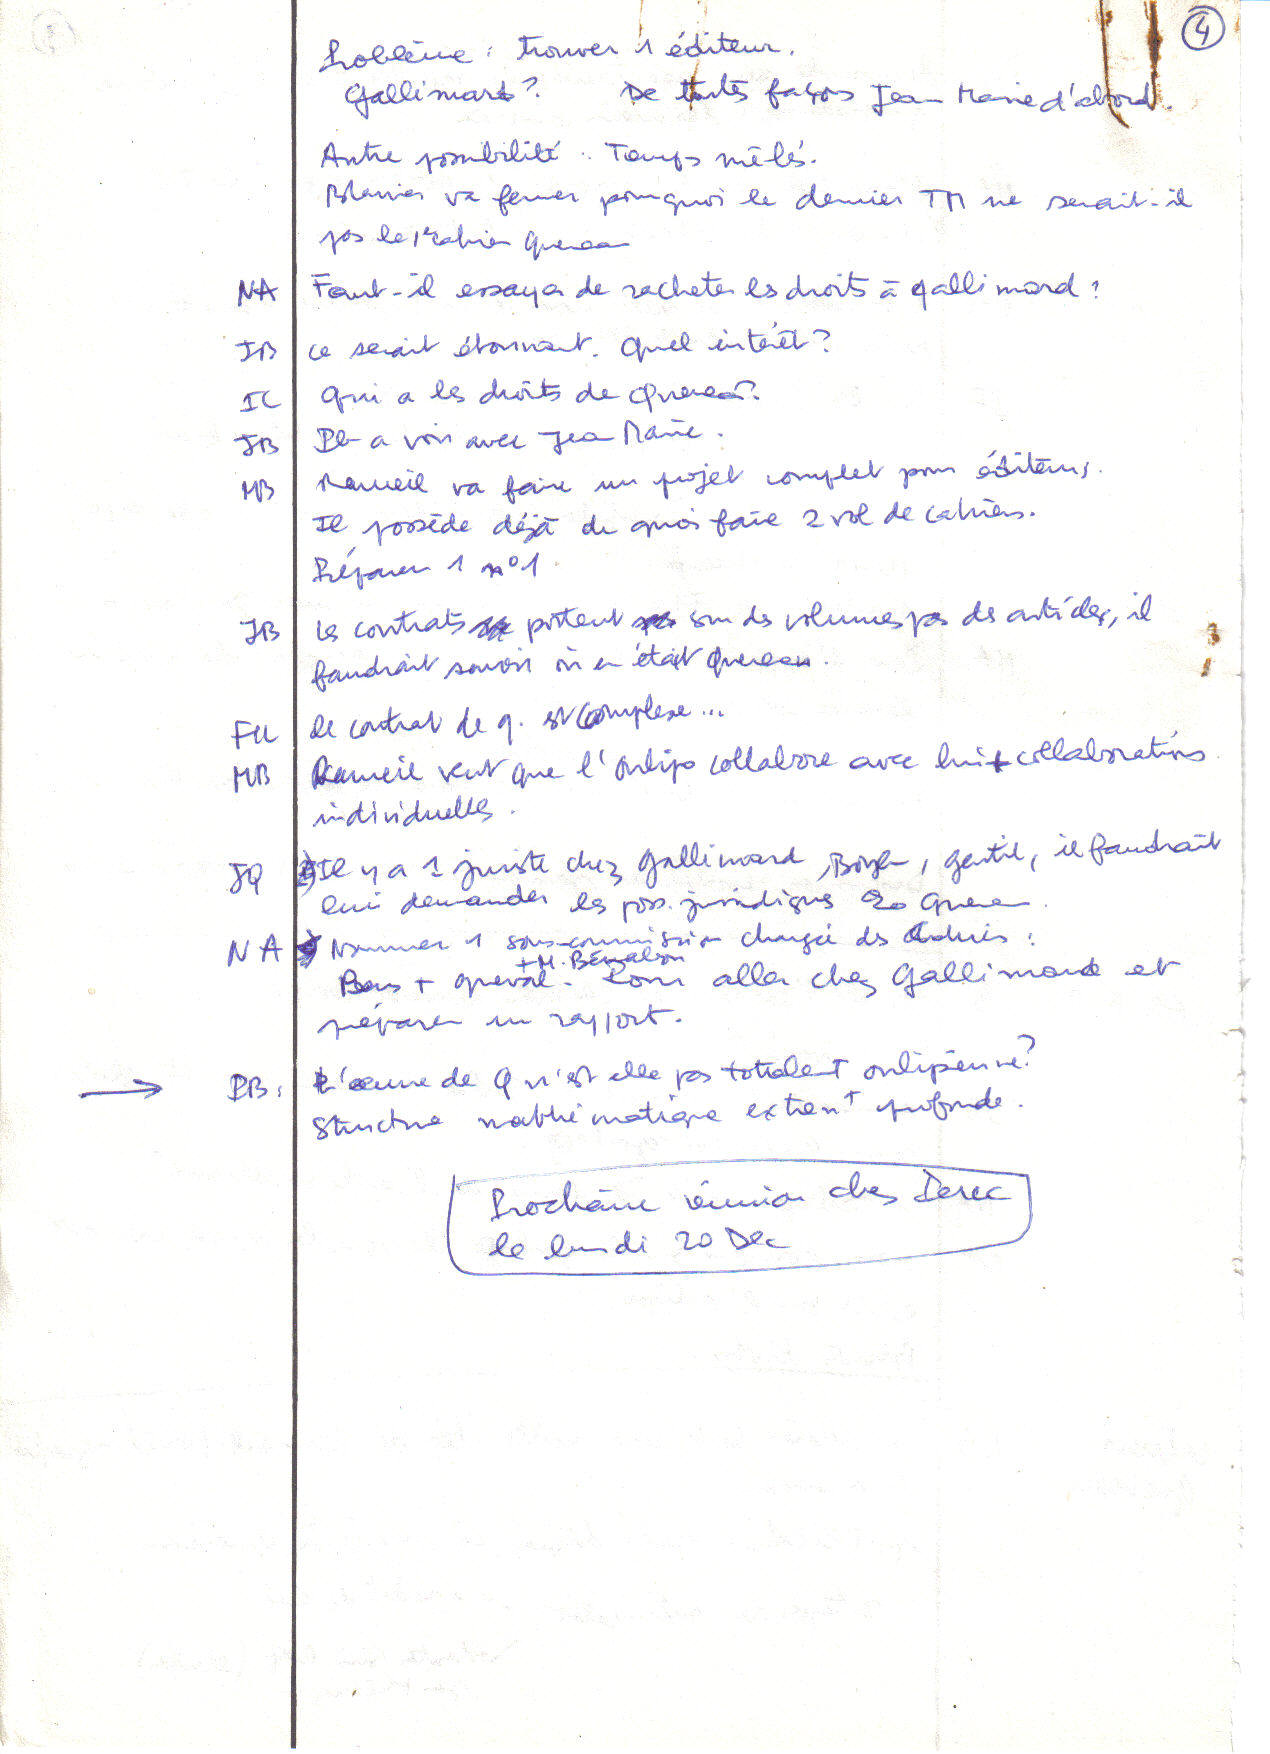 4
Problème : trouver 1 éditeur.
Gallimard ? De toutes façons Jean Marie d'abord.
Autre possibilité : Temps mêlés.
Blavier va fermer pourquoi le dernier TM ne serait-il
pas le 1er cahier Queneau
NA Faut-il essayer de racheter les droits à Gallimard ?
JB ce serait étonnant. Quel intérêt ?
IC Qui a les droits de Queneau ?
JB a voir avec Jean Marie.
MB Rameil va faire un projet complet pour éditeurs.
Il possède déjà de quoi faire 2 vol de cahiers.
Préparer 1 n°1.
JB Les contrats portent sur des volumes pas des articles, il
faudrait savoir où en était Queneau.
FLL Le contrat de Q. est complexe...
MB Rameil veut que l'Oulipo collabore avec lui + collaborations
individuelles.
JQ Il y a 1 juriste chez Gallimard, gentil, il faudrait
lui demander les poss. juridiques Queneau.
NA Nommer 1 sous-commission chargée des :
+ M. Bénabou
Bens + Queval. Pour aller chez Gallimard et
préparer un rapport.
→ PB : L'œuvre de Q n'est elle pas totalemt oulipienne ?
Structure mathématique extremt profonde.
Prochaine réunion chez Perec
le lundi 20 Dec